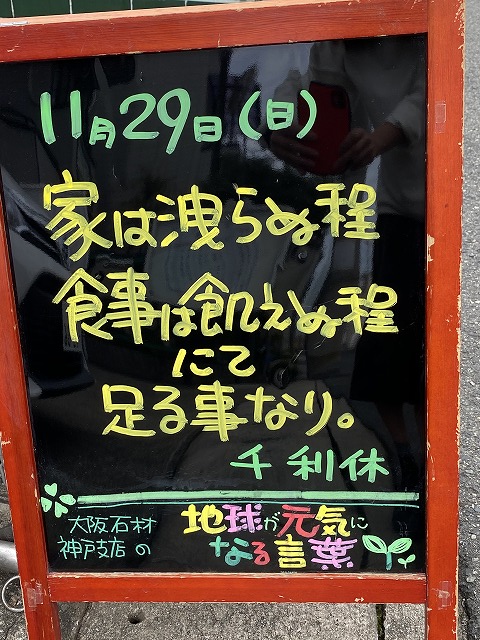 11月29日(日)
家は洩らぬ程
食事は飢えぬ程
にて
足る事なり。
千利休
大阪石材
神戸支店の
地球が元気に
なる言葉